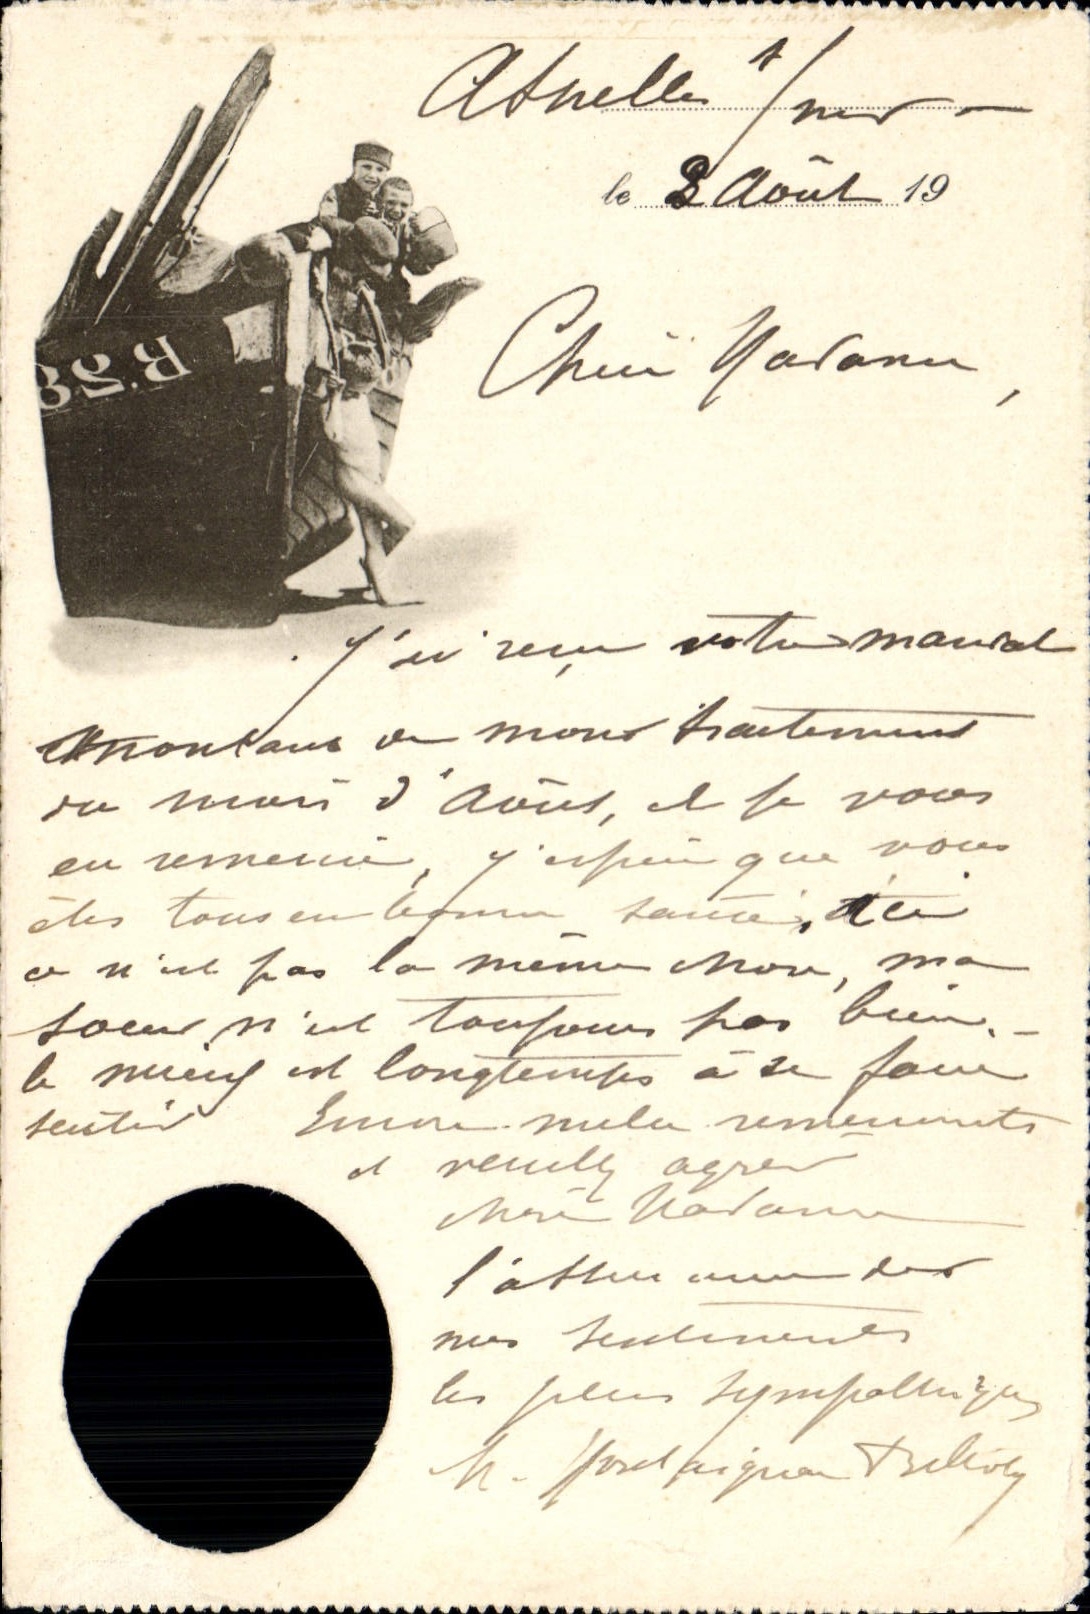 Asnelles s/mer -
le 3 Août 19
B.38
Chère Madame,
J'ai reçu votre mandat
montant de mon traitement
du mois d'Août, et je vous
en remercie, j'espère que vous
êtes tous en bonne santé, ici
ce n'est pas la même chose, ma
soeur n'est toujours pas bien. -
le mieux est longtemps à se faire
sentir Encore mille remerciements
et veuillez agréer
chère Madame
l'assurance de
mes sentiments
les plus sympathiques
M.